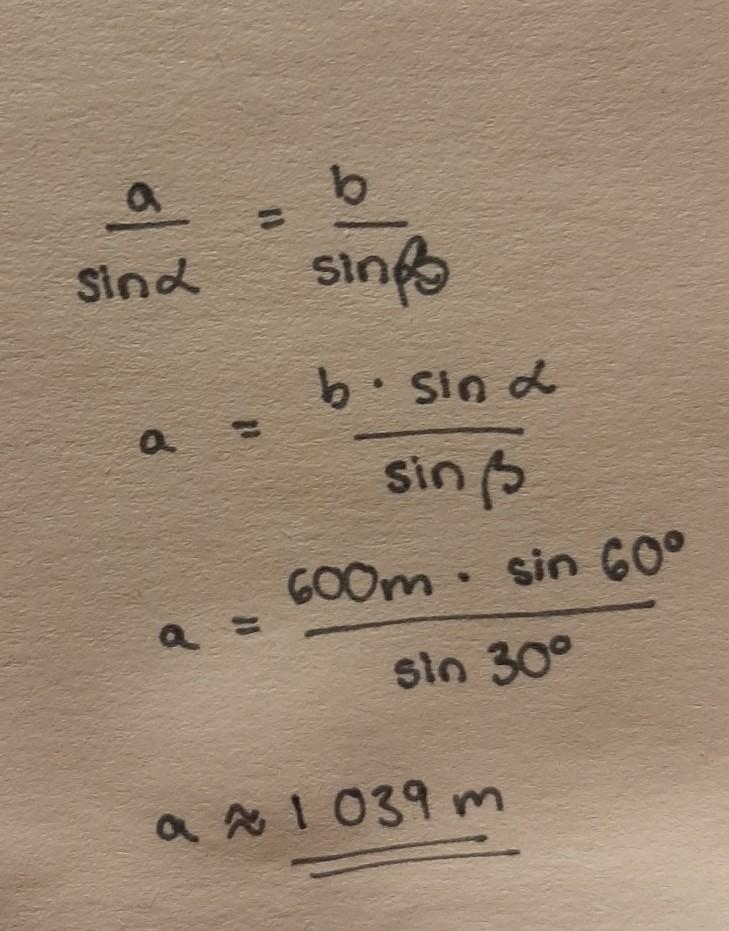 a/sinα = b/sinβ
a = b · sin α/sin β
a = 600m · sin 60°/sin 30°
a ≈ 1 039 m